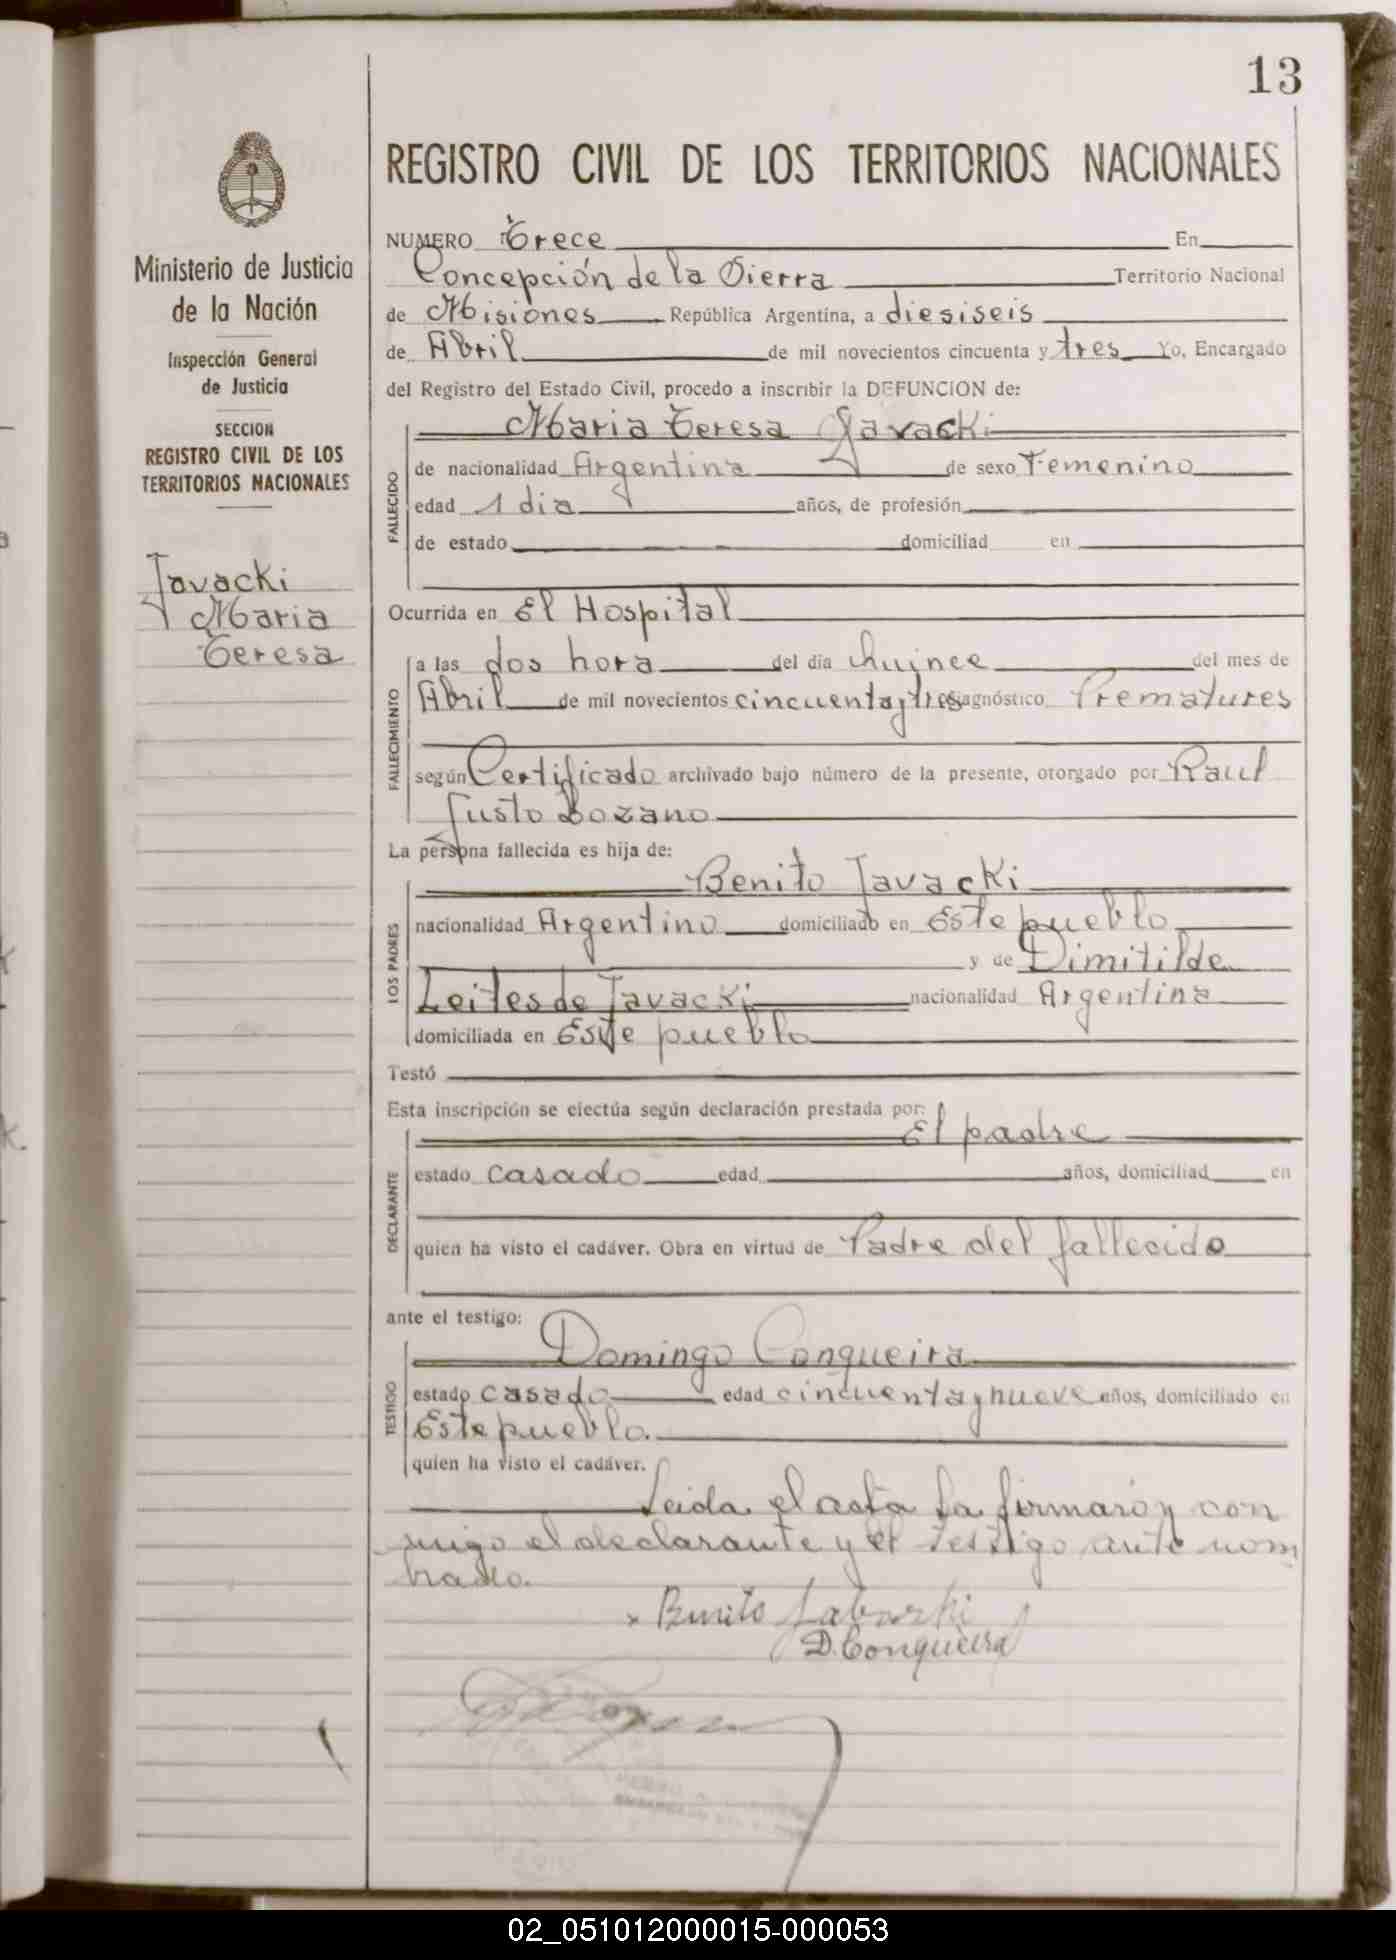 13
REGISTRO CIVIL DE LOS TERRITORIOS NACIONALES
Ministerio de Justicia
de la Nación
Inspección General
de Justicia
SECCION
REGISTRO CIVIL DE LOS
TERRITORIOS NACIONALES
Javacki
Maria
Teresa
NUMERO Trece En
Concepción de la Sierra Territorio Nacional
de Misiones República Argentina, a diesiseis
de Abril de mil novecientos cincuenta y tres Yo, Encargado
del Registro del Estado Civil, procedo a inscribir la DEFUNCION de:
Maria Teresa Javacki
FALLECIDO
de nacionalidad Argentina de sexo Femenino
edad 1 dia años, de profesión
de estado domiciliad en
Ocurrida en El Hospital
FALLECIMIENTO
a las dos hora del día quince del mes de
Abril de mil novecientos cincuenta y tres diagnóstico Prematures
según Certificado archivado bajo número de la presente, otorgado por Raul
Justo Lozano
La persona fallecida es hija de:
LOS PADRES
Benito Javacki
nacionalidad Argentino domiciliado en Este pueblo
y de Dimitilde
Leites de Javacki nacionalidad Argentina
domiciliada en Este pueblo
Testó
Esta inscripción se efectúa según declaración prestada por:
DECLARANTE
El padre
estado casado edad años, domiciliad en
quien ha visto el cadáver. Obra en virtud de Padre del fallecido
ante el testigo:
TESTIGO
Domingo Conqueira
estado casado edad cincuenta y nueve años, domiciliado en
Este pueblo.
quien ha visto el cadáver.
Leida el acta la firmaron con
migo el declarante y el testigo ante nom
brado.
Benito
D. Conqueira
02_051012000015-000053